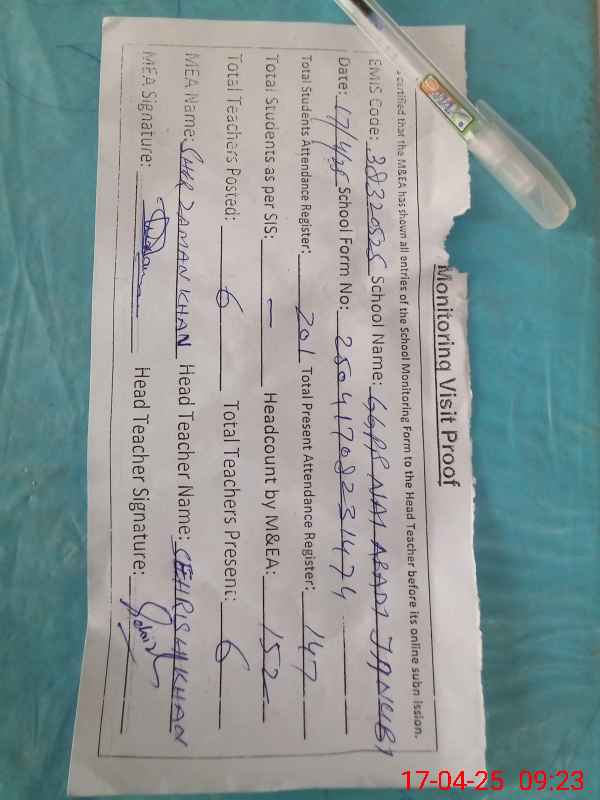 Monitoring Visit Proof
certified that the M&EA has shown all entries of the School Monitoring Form to the Head Teacher before its online submission.
EMIS Code: 38320525 School Name: GGPS NAI ABADI JANUBI
Date: 17/4/25 School Form No: 25041708231474
Total Students Attendance Register: 201 Total Present Attendance Register: 147
Total Students as per SIS: - Headcount by M&EA: 152
Total Teachers Posted: 6 Total Teachers Present: 6
MEA Name: SHER ZAMAN KHAN Head Teacher Name: KHAN
MEA Signature: Head Teacher Signature:
17-04-25 09:23